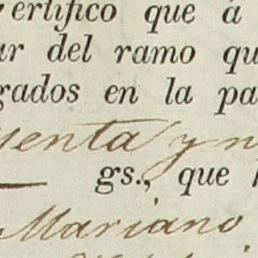 ertifico que á
ar del ramo qu
gados en la pa
enta y n
gs., que
Mariano